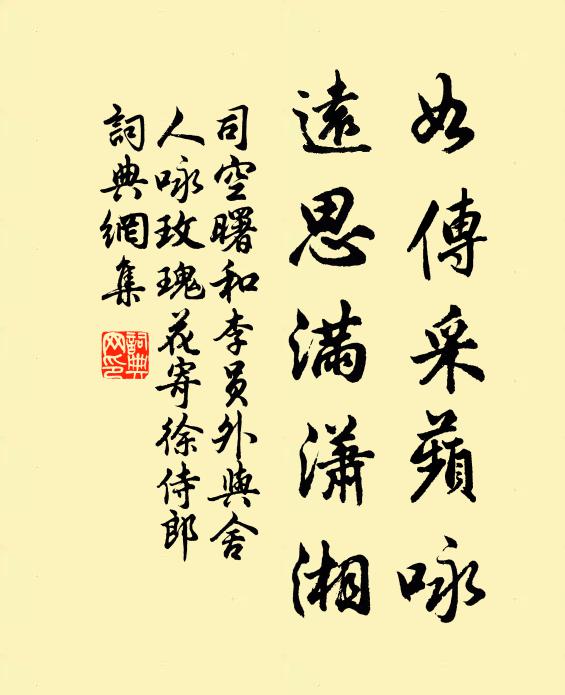 如傳采蘋咏
遠思滿瀟湘
司空曙和李員外與舍
人咏玫瑰花寄徐侍郎
詞典網集
詞典
网印